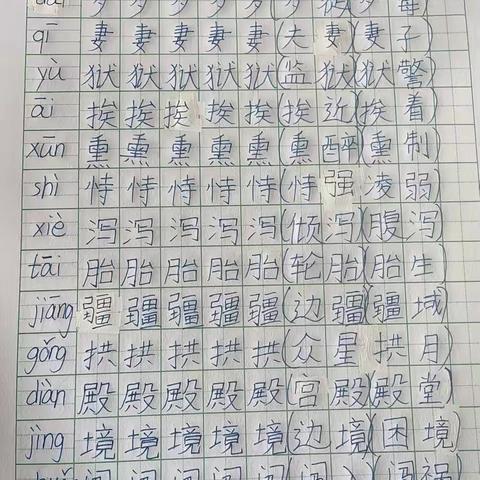 qī 妻 妻 妻 妻 妻 (夫 妻) (妻 子)
yù 狱 狱 狱 狱 狱 (监 狱) (狱 警)
āi 挨 挨 挨 挨 挨 (挨 近) (挨 着)
xūn 熏 熏 熏 熏 熏 (熏 醉) (熏 制)
shì 恃 恃 恃 恃 恃 (恃 强 凌 弱)
xiè 泻 泻 泻 泻 泻 (倾 泻) (腹 泻)
tāi 胎 胎 胎 胎 胎 (轮 胎) (胎 生)
jiāng 疆 疆 疆 疆 疆 (边 疆) (疆 域)
gǒng 拱 拱 拱 拱 拱 (众 星 拱 月)
diàn 殿 殿 殿 殿 殿 (宫 殿) (殿 堂)
jìng 境 境 境 境 境 (边 境) (困 境)